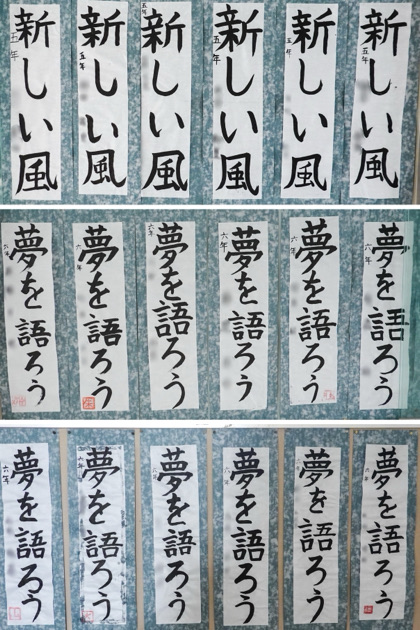 新しい風
五年
新しい風
五年
新しい風
五年
新しい風
五年
新しい風
五年
新しい風
五年
夢を語ろう
六年
夢を語ろう
六年
夢を語ろう
六年
夢を語ろう
六年
夢を語ろう
六年
夢を語ろう
六年
夢を語ろう
六年
夢を語ろう
六年
夢を語ろう
六年
夢を語ろう
六年
夢を語ろう
六年
夢を語ろう
六年